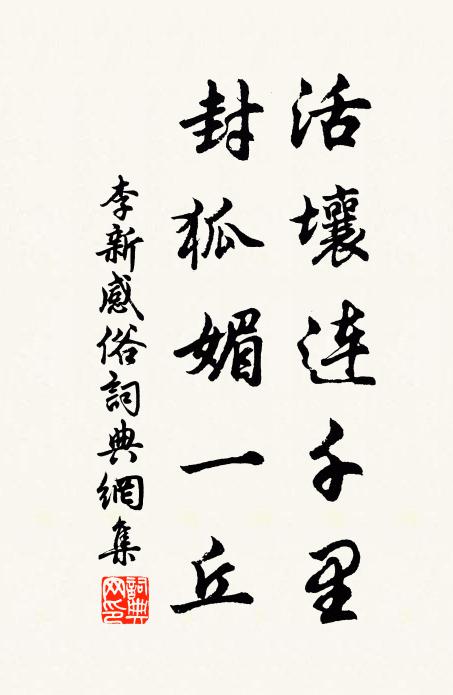 活壤连千里
封狐媚一丘
李新感俗詞典網集
詞典网印